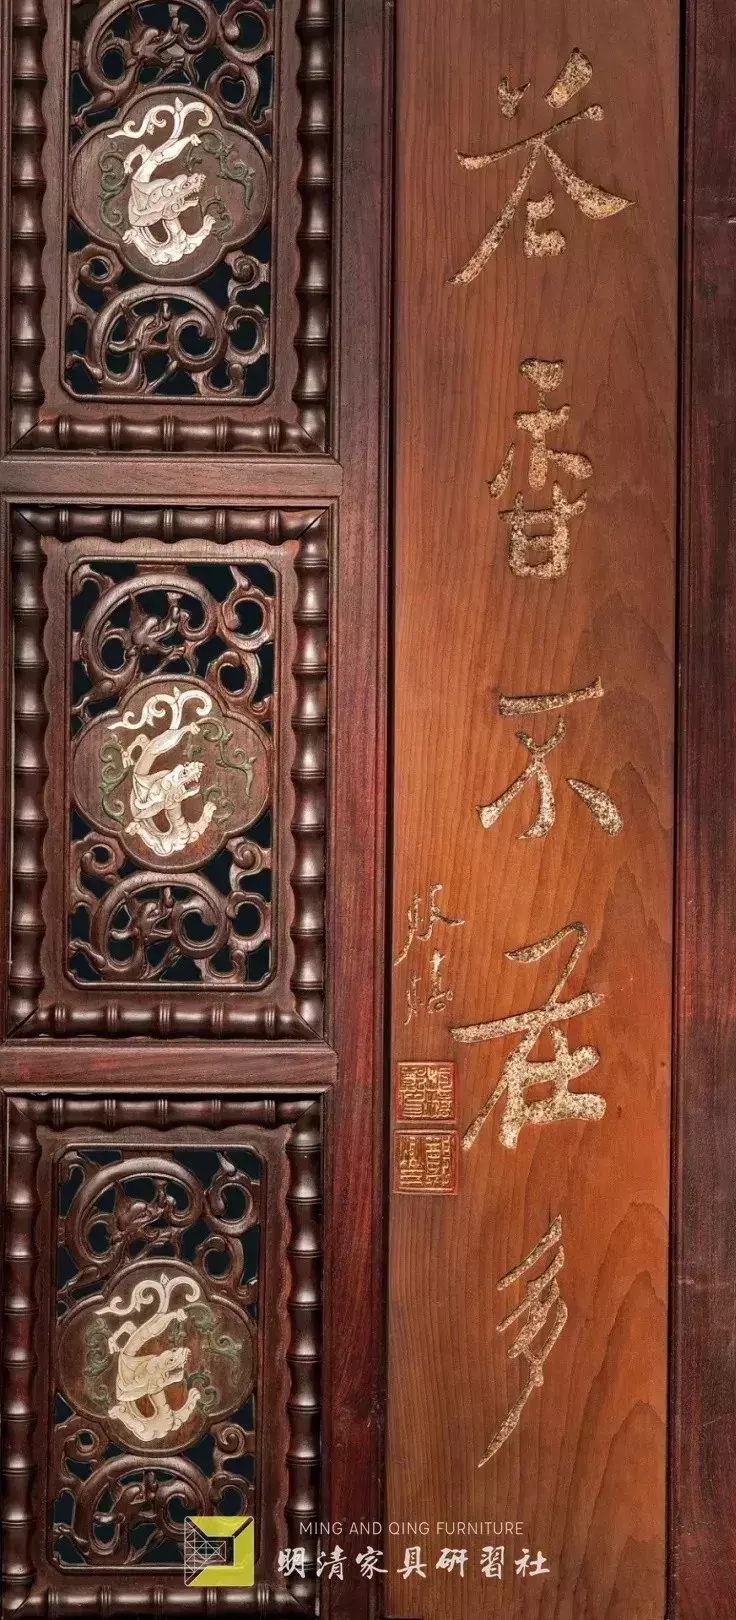 花香不在多
板橋
MING AND QING FURNITURE
明清家具研習社